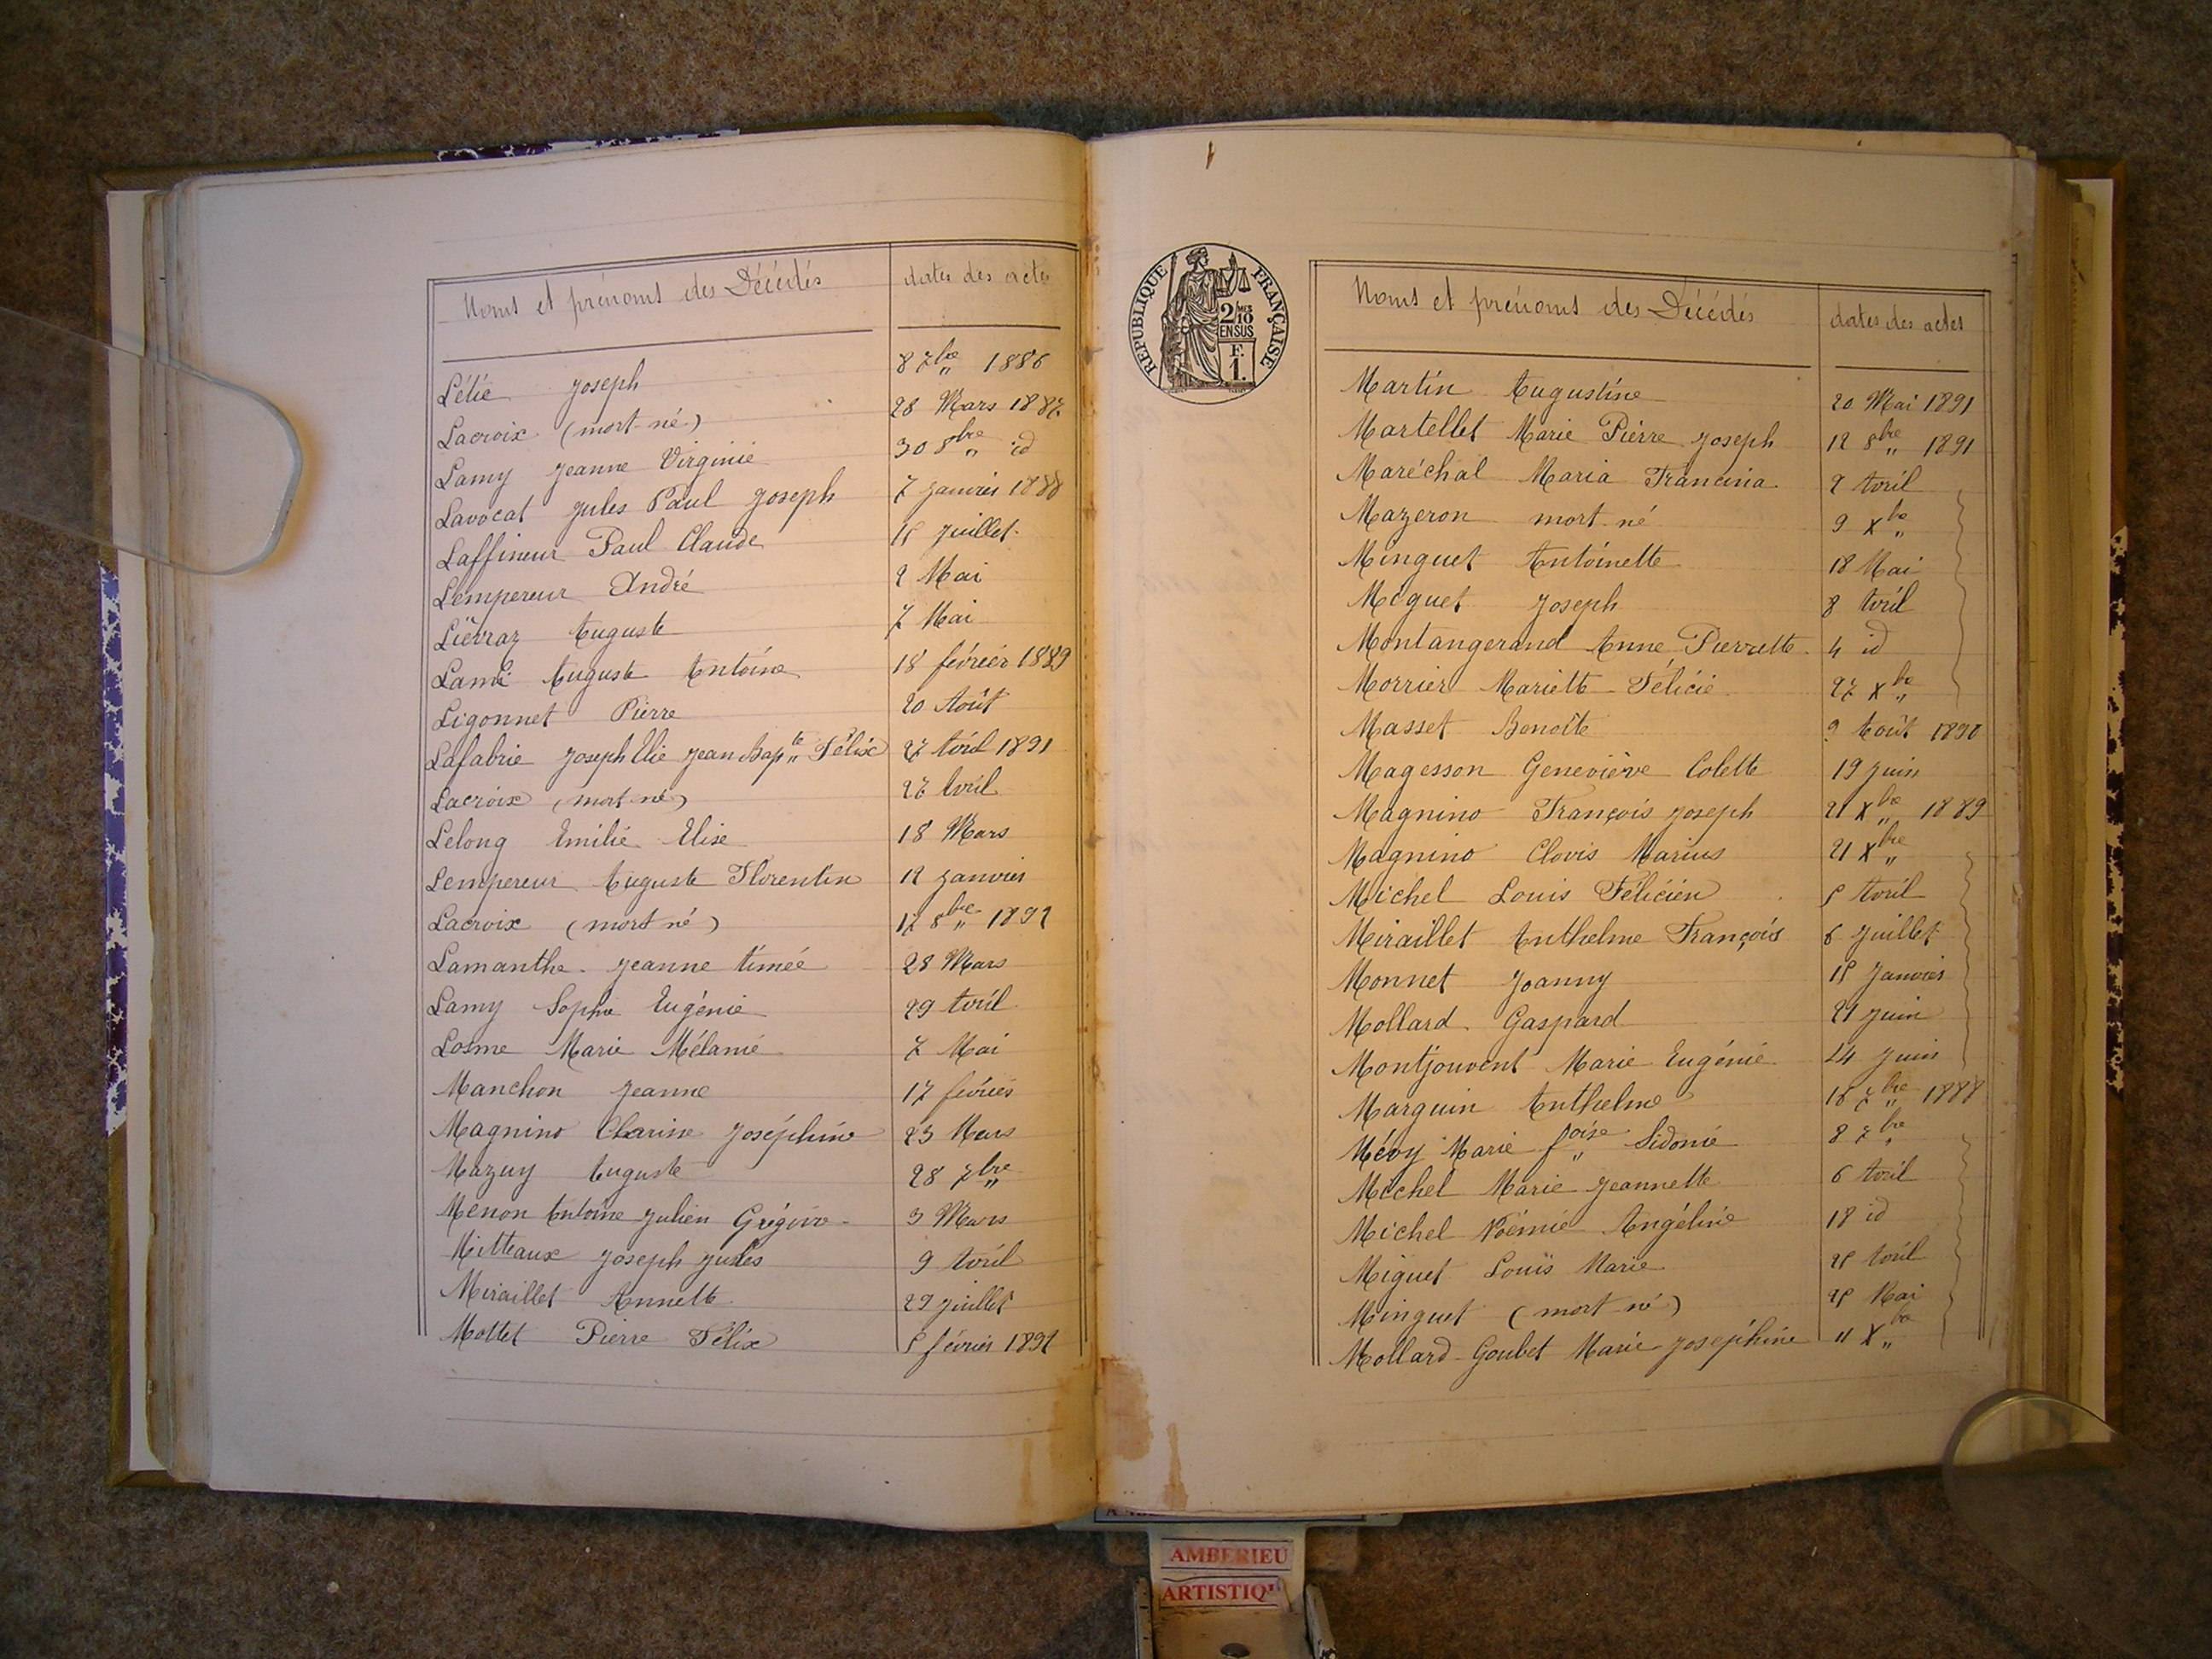 Noms et prénoms des Décédés dates des actes
Lélie Joseph 8 7bre 1886
Lacroix (mort-né) 28 Mars 1887
Lamy Jeanne Virginie 30 8bre id
Lavocat Jules Paul Joseph 7 Janvier 1888
Laffineur Paul Claude 15 Juillet
Lempereur André 2 Mai
Liévraz Auguste 7 Mai
Lami Auguste Antoine 18 février 1889
Ligonnet Pierre 20 Août
Lafabrie Joseph Elie Jean Bapte Félix 27 Avril 1891
Lacroix (mort-né) 27 Avril
Lelong Emilie Elise 18 Mars
Lempereur Auguste Florentin 12 Janvier
Lacroix (mort né) 17 8bre 1892
Lamanthe Jeanne Aimée 28 Mars
Lamy Sophie Eugénie 29 Avril
Losme Marie Mélanie 7 Mai
Manchon Jeanne 17 février
Magnino Clarine Joséphine 23 Mars
Mazuy Auguste 28 7bre
Menon Antoine Julien Grégoire 3 Mars
Mitteaux Joseph Jules 9 Avril
Miraillet Annette 29 Juillet
Mottet Pierre Félix 5 février 1891
REPUBLIQUE FRANÇAISE
2/10MES
EN SUS
F.
1.
Noms et prénoms des Décédés dates des actes
Martin Augustine 20 Mai 1891
Martellet Marie Pierre Joseph 12 8bre 1891
Maréchal Maria Francina 2 Avril
Mazeron mort-né 9 Xbre
Minguet Antoinette 18 Mai
Miguet Joseph 8 Avril
Montangerand Anne Pierrette 4 id
Morrier Mariette Félicie 27 Xbre
Masset Benoîte 2 Août 1890
Magesson Geneviève Colette 19 Juin
Magnino François Joseph 21 Xbre 1889
Magnino Clovis Marius 21 Xbre
Michel Louis Félicien 5 Avril
Miraillet Anthelme François 6 Juillet
Monnet Joanny 15 Janvier
Mollard Gaspard 21 Juin
Montjouvent Marie Eugénie 24 Juin
Marguin Anthelme 16 7bre 1888
Mévy Marie foise Sidonie 8 7bre
Michel Marie Jeannette 6 Avril
Michel Noémie Angéline 18 id
Miguet Louis Marie 25 Avril
Minguet (mort né) 25 Mai
Mollard-Goubet Marie Joséphine 11 Xbre
AMBERIEU
ARTISTIQ